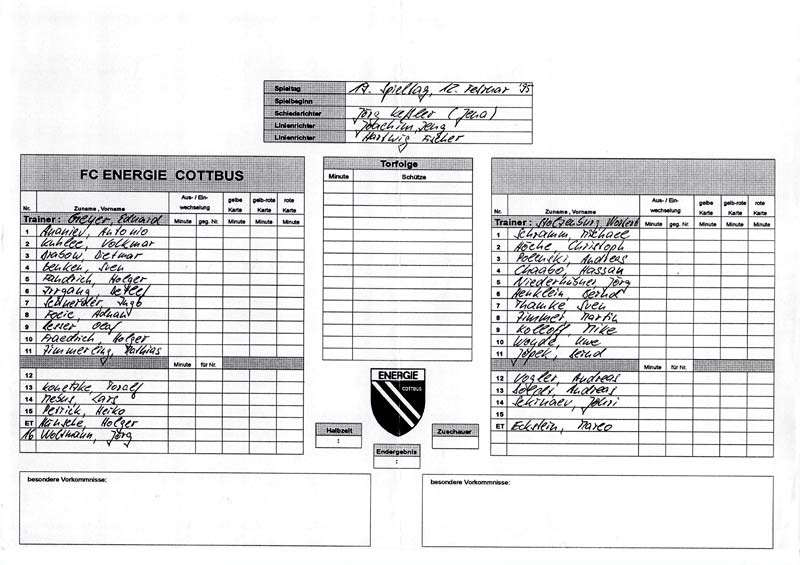 Spieltag 17. Spieltag, 12. Februar '95
Spielbeginn
Schiedsrichter Jörg Keßler (Jena)
Linienrichter Joachim, Jena
Linienrichter Hartwig Fischer
FC ENERGIE COTTBUS
Nr. Zuname, Vorname Aus- / Ein-wechselung gelbe Karte gelb-rote Karte rote Karte
Trainer: Geyer, Eduard Minute geg. Nr. Minute Minute Minute
1 Ananiev, Antonio
2 Kuhlee, Volkmar
3 Drabow, Dietmar
4 Benken, Sven
5 Fandrich, Holger
6 Irrgang, Detlef
7 Schneider, Ingo
8 Adnan
9 Lesser Olaf
10 Friedrich, Holger
11 Zimmerling, Mathias
Minute für Nr.
12
13 Konetzke, Toralf
14 Mebus, Lars
15 Petrick, Heiko
ET Wünsche, Holger
16 Woltmann, Jörg
Torfolge
Minute Schütze
ENERGIE
COTTBUS
Halbzeit
:
Endergebnis
:
Zuschauer
Nr. Zuname, Vorname Aus- / Ein-wechselung gelbe Karte gelb-rote Karte rote Karte
Trainer: Minute geg. Nr. Minute Minute Minute
1 Schramm, Michael
2 Höche, Christoph
3 Polenski, Andreas
4 Chaabo, Hassan
5 Niederhübner, Jörg
6 Henklein, Bernd
7 Thamke Sven
8 Zimmer, Martin
9 Kolloff Mike
10 Wonde, Uwe
11 Jopek, Bernd
Minute für Nr.
12 Vogler, Andreas
13 Andreas
14 Schinaev, Juri
15
ET Eckstein, Marco
besondere Vorkommnisse:
besondere Vorkommnisse: